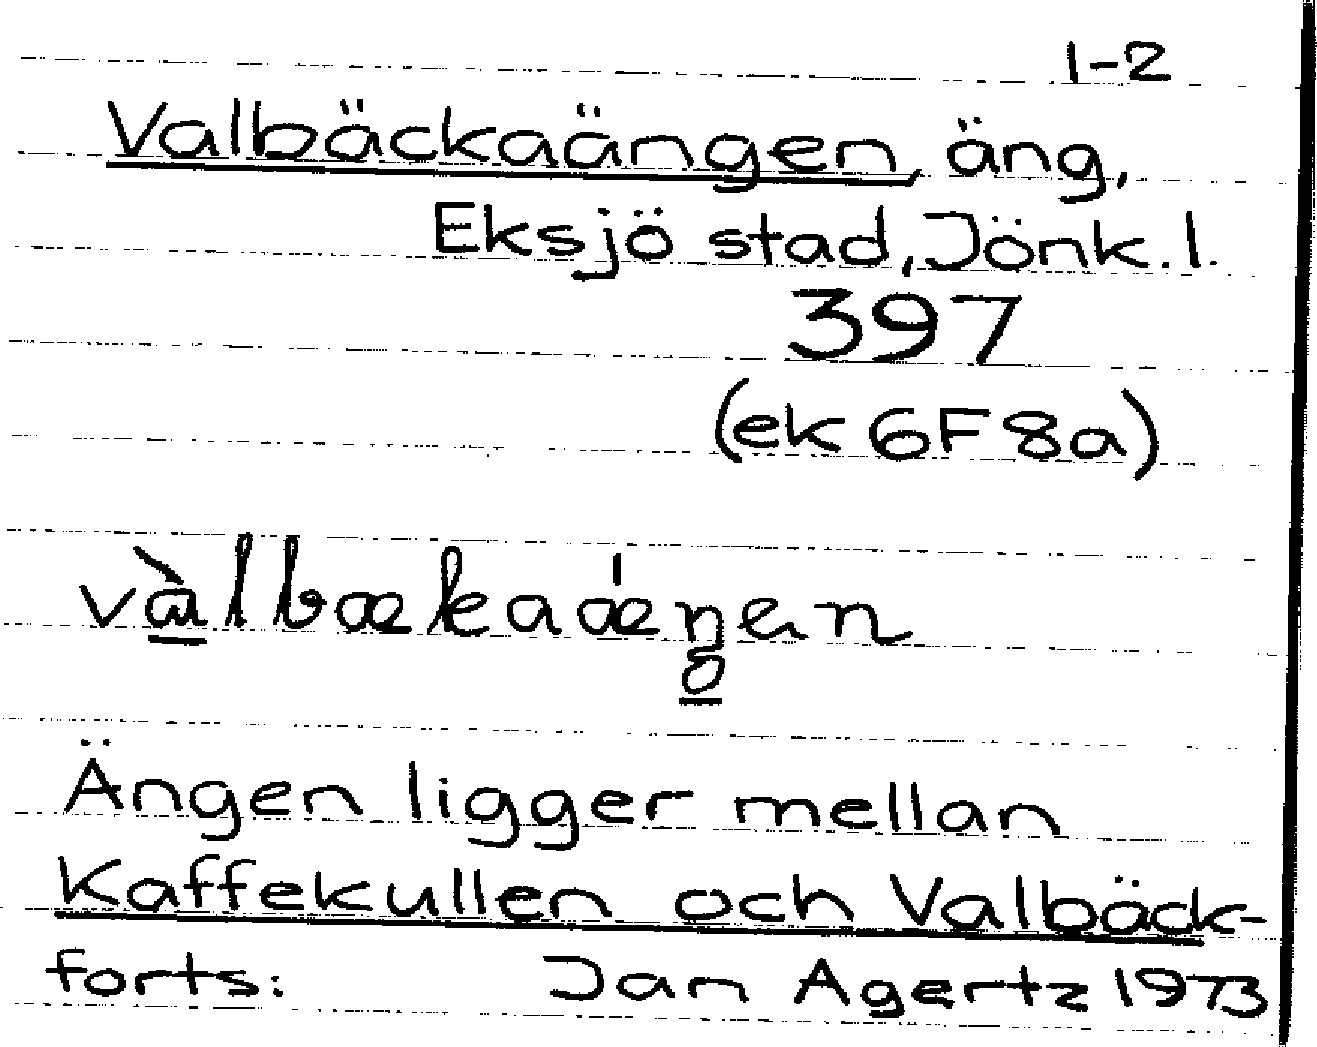 1-2
Valbäckaängen, äng,
Eksjö stad, Jönk. l.
397
(ek 6F8a)
vàlbækaǽŋen
Ängen ligger mellan
Kaffekullen och Valbäck-
forts: Jan Agertz 1973